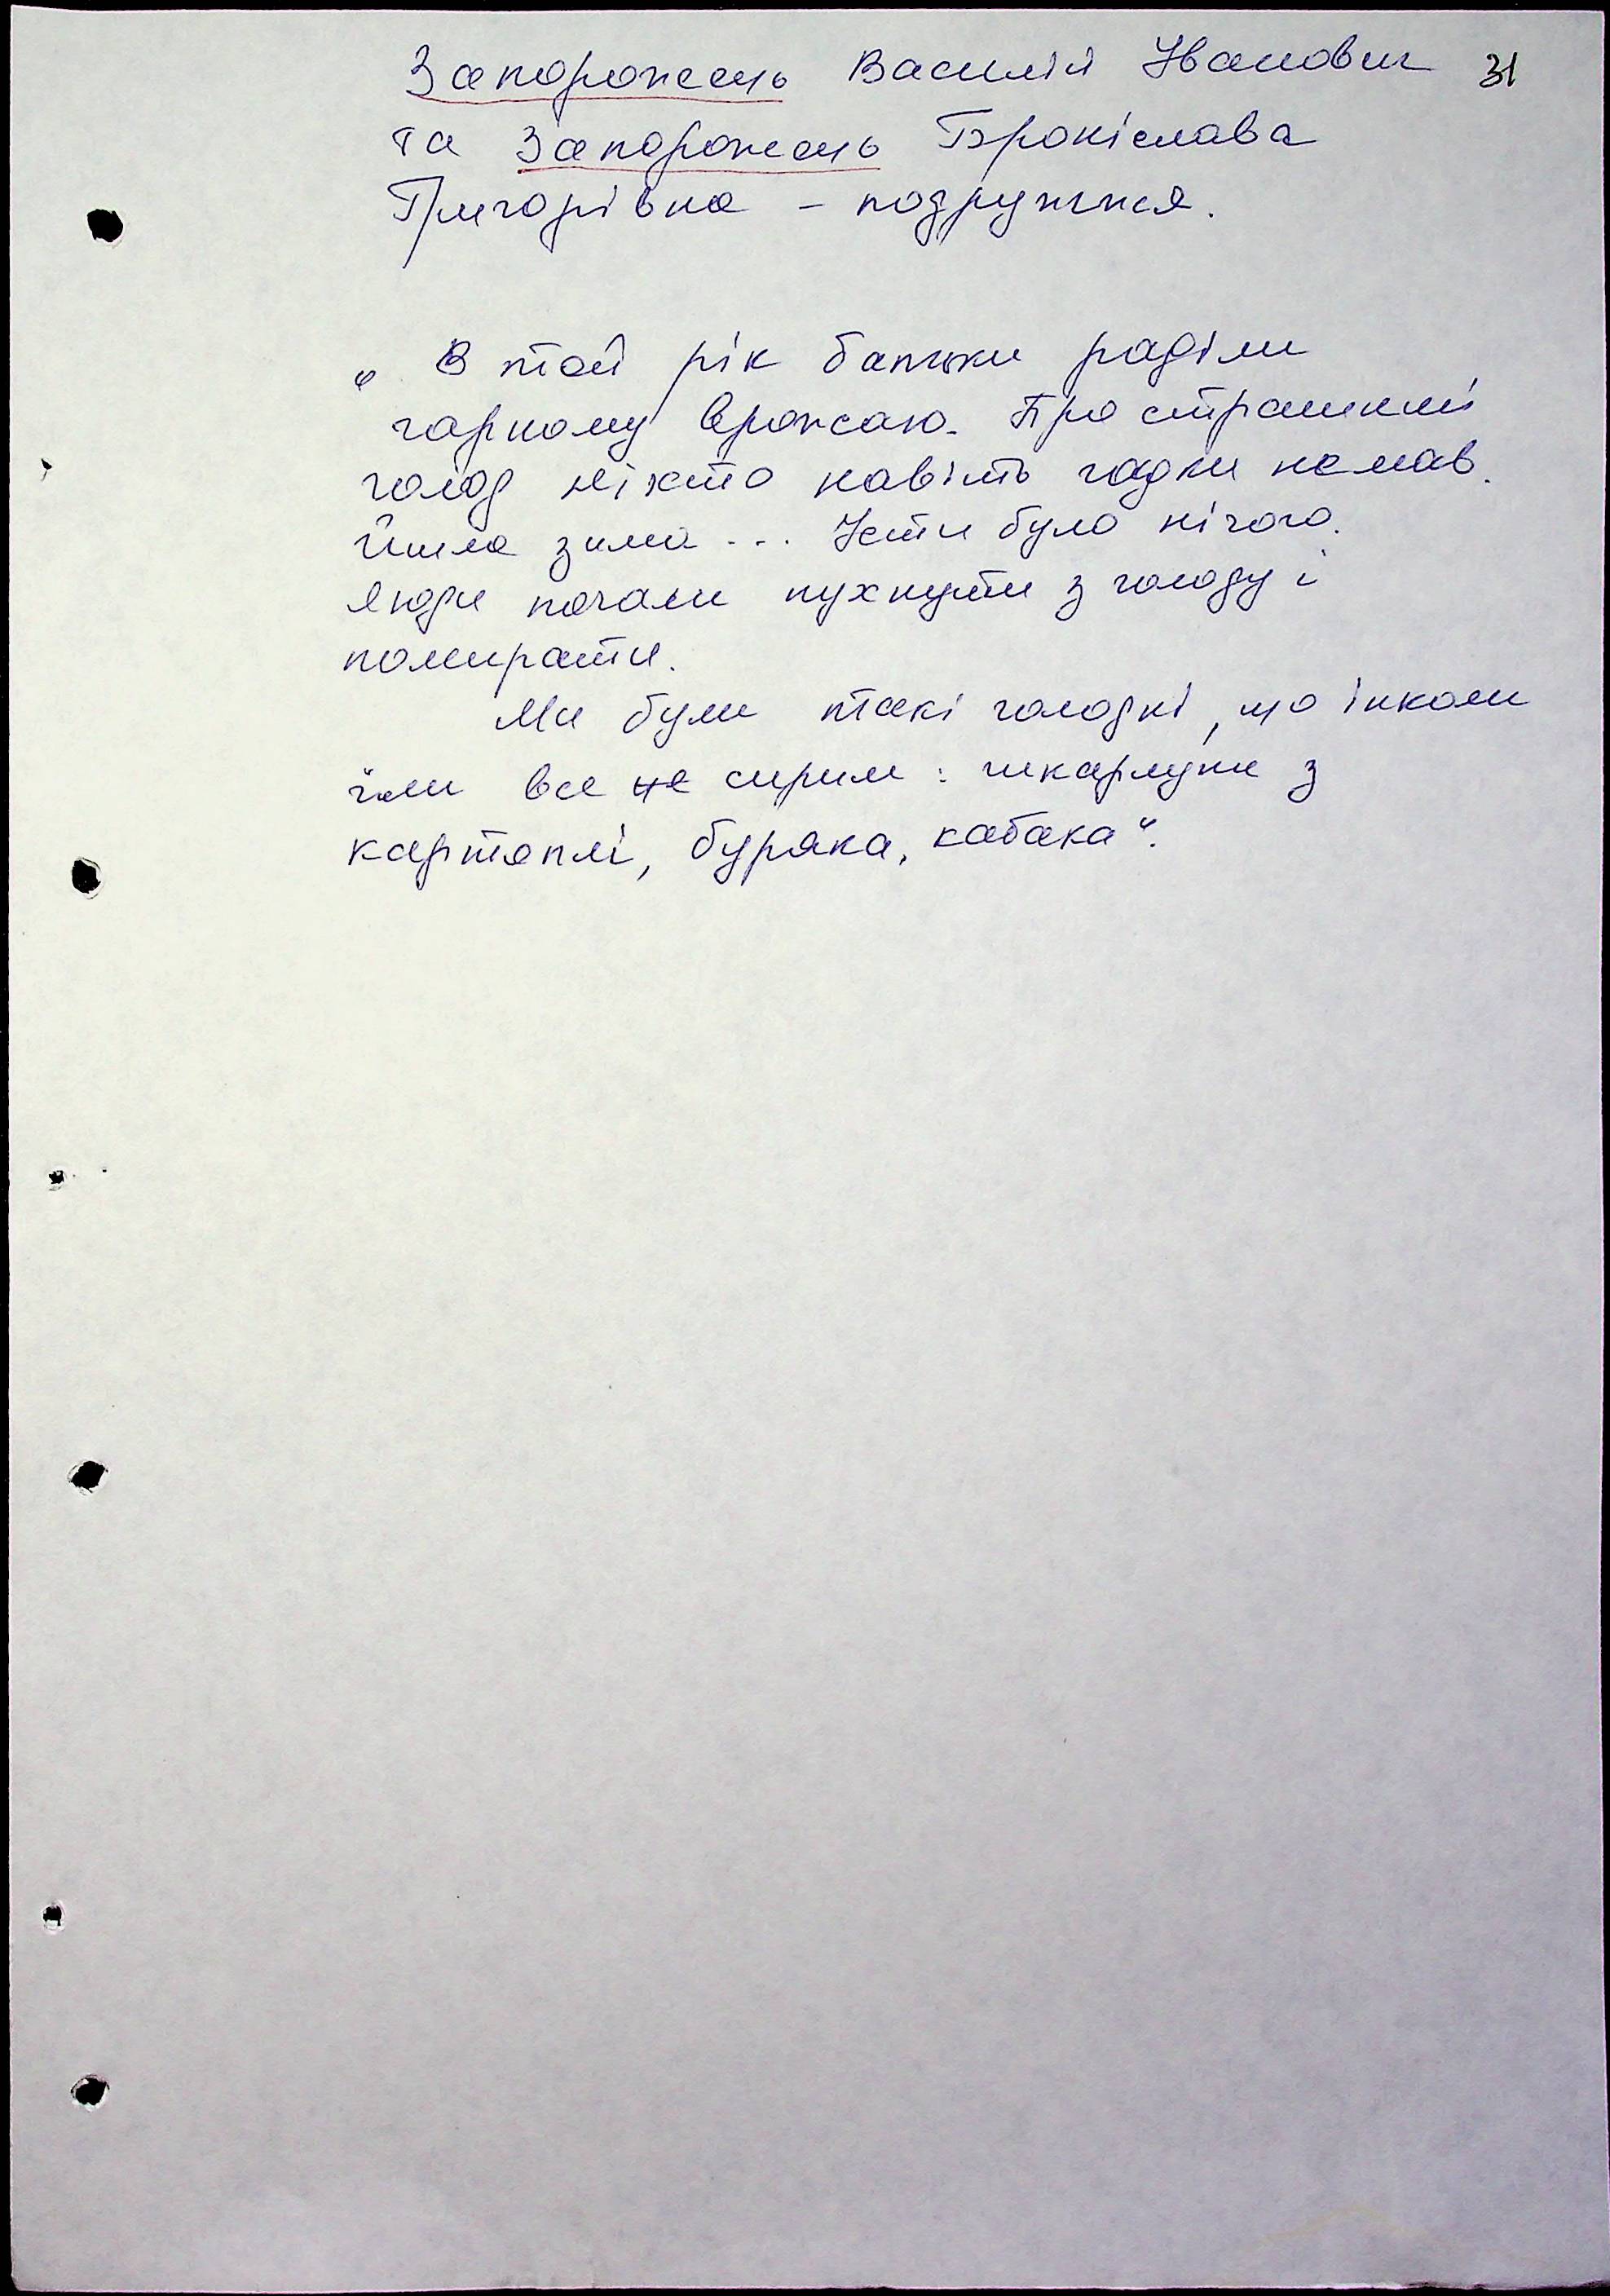 Запорожець Василій Іванович 31
та Запорожець Броніслава
Григорівна - подружжя.
„В той рік батьки раділи
гарному врожаю. Про страшний
голод ніхто навіть гадки не мав.
Йшла зима... Їсти було нічого.
Люди почали пухнути з голоду і
помирати.
Ми були такі голодні, що інколи
їли все не сирим: шкарлупи з
картоплі, буряка, кабака".